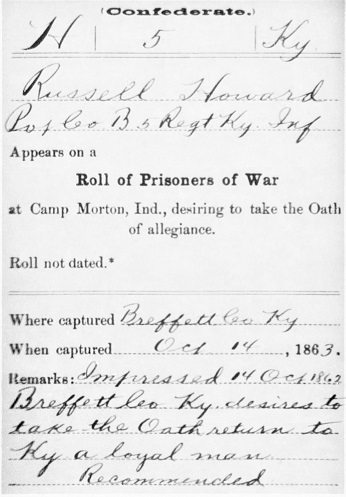 (Confederate.)
H | 5 | Ky.
Russell Howard
Pvt Co B 5 Regt Ky. Inf
Appears on a
Roll of Prisoners of War
at Camp Morton, Ind., desiring to take the Oath
of allegiance.
Roll not dated.*
Where captured Breffett Co Ky
When captured Oct 14, 1863.
Remarks: Impressed 14 Oct 1862
Breffett Co Ky. desires to
take the Oath return to
Ky a loyal man
Recommended